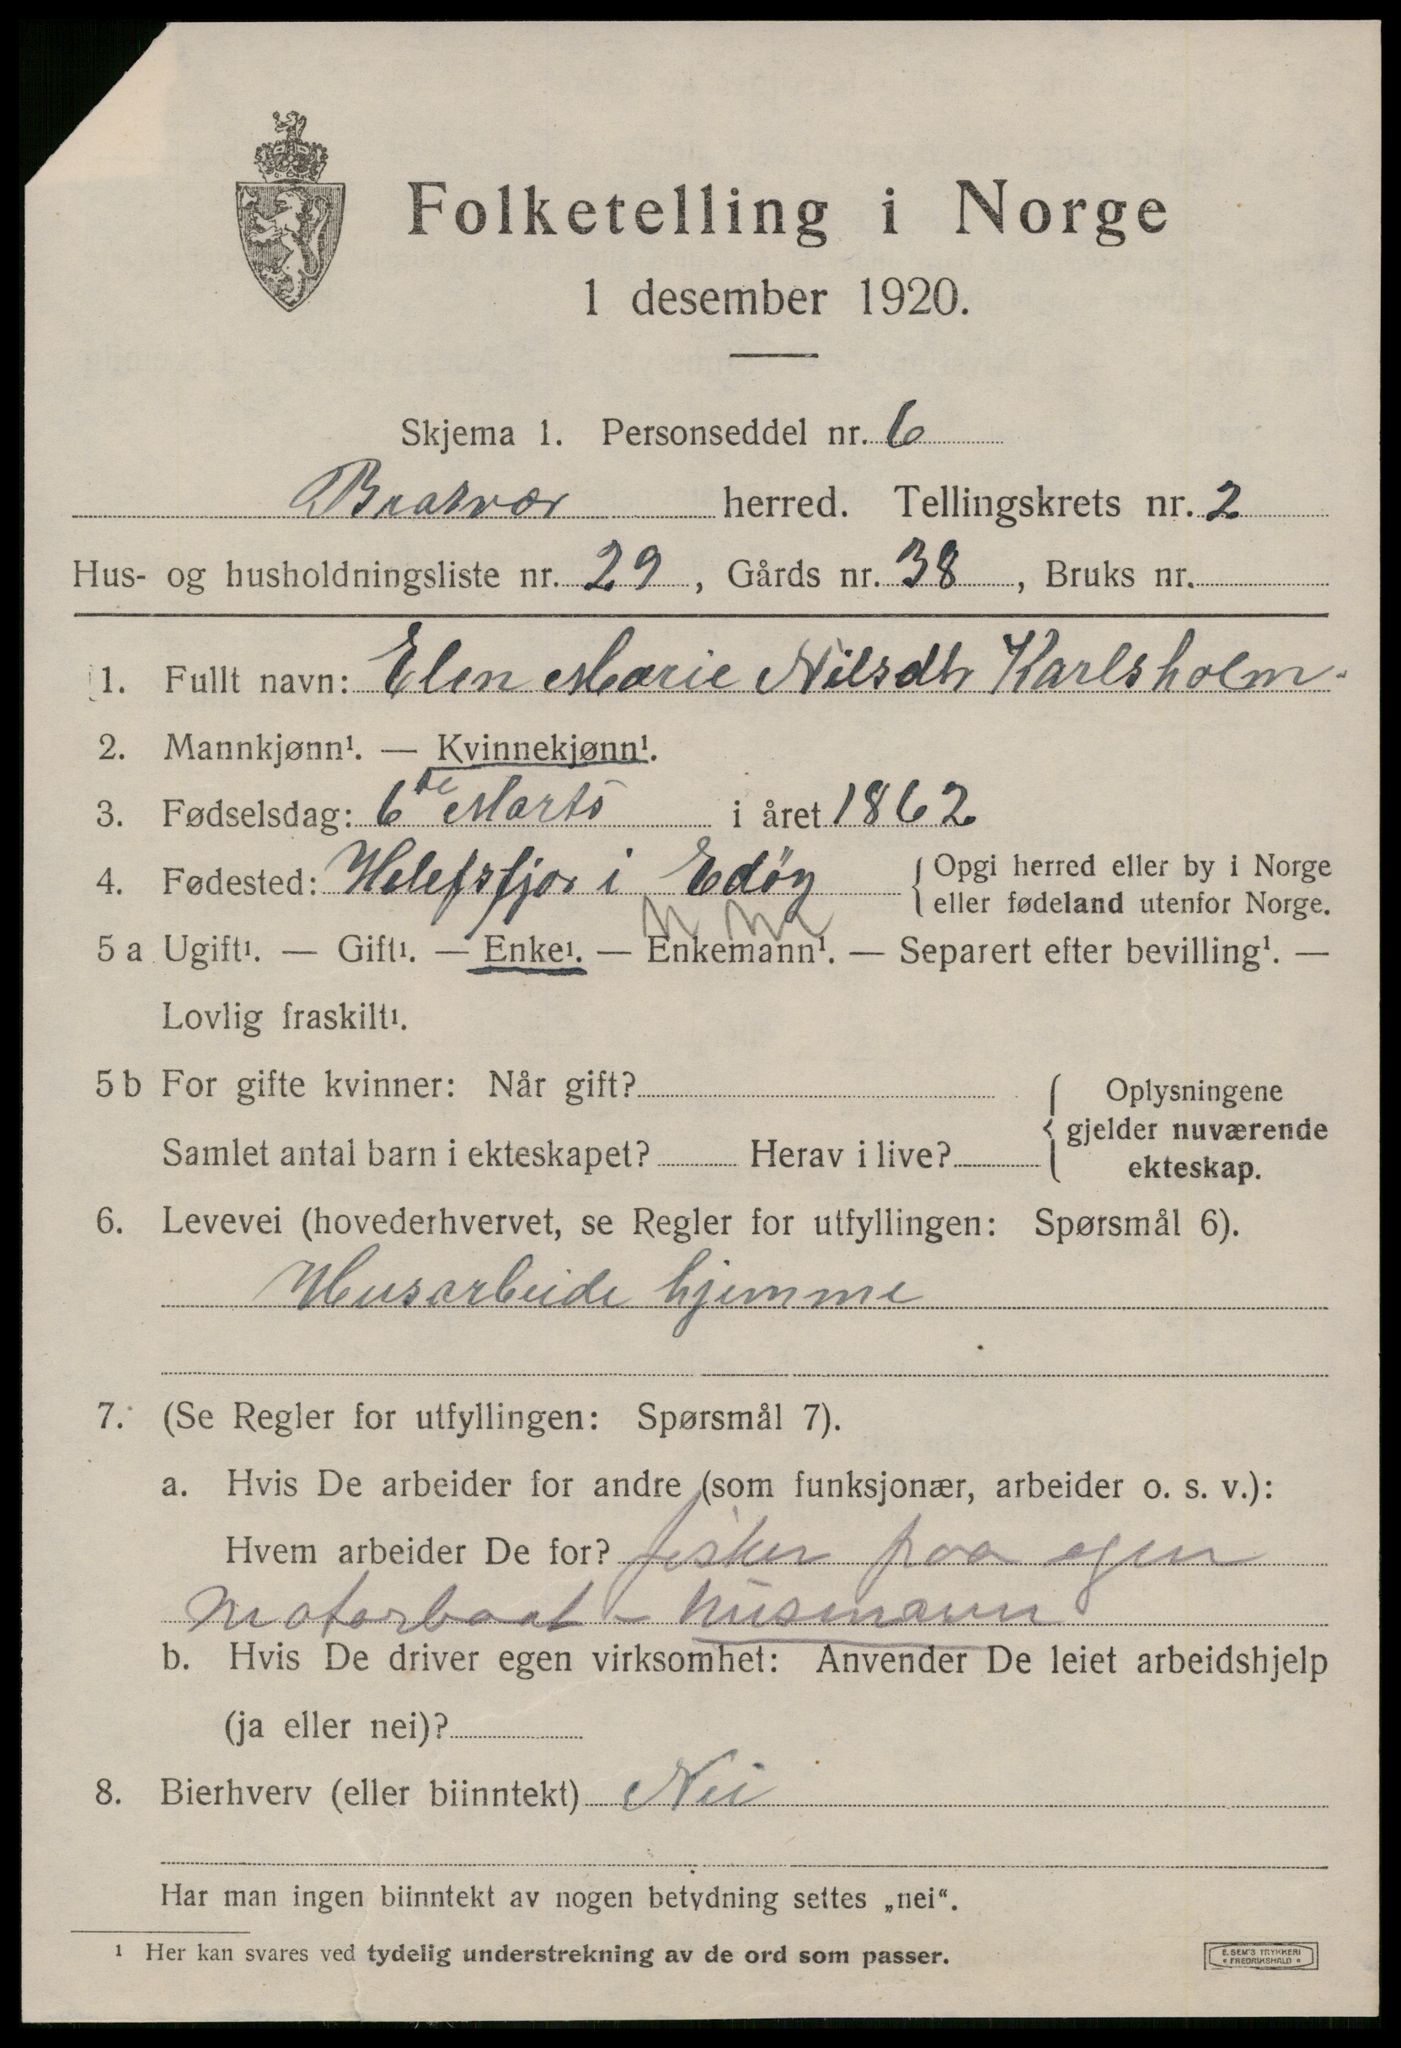 Folketelling i Norge
1 desember 1920.
Skjema 1. Personseddel nr. 6
Bratvær herred. Tellingskrets nr. 2
Hus- og husholdningsliste nr. 29, Gårds nr. 38, Bruks nr.
1. Fullt navn: Elen Marie Nilsdtr Karlsholm.
2. Mannkjønn¹. — Kvinnekjønn¹.
3. Fødselsdag: 6 de Marts i året 1862
4. Fødested: i Edøy { Opgi herred eller by i Norge
eller fødeland utenfor Norge.
5 a Ugift¹. — Gift¹. — Enke¹. — Enkemann¹. — Separert efter bevilling¹. —
Lovlig fraskilt¹.
5 b For gifte kvinner: Når gift? { Oplysningene
gjelder nuværende
Samlet antal barn i ekteskapet? Herav i live? ekteskap.
6. Levevei (hovederhvervet, se Regler for utfyllingen: Spørsmål 6).
Husarbeide hjemme
7. (Se Regler for utfyllingen: Spørsmål 7).
a. Hvis De arbeider for andre (som funksjonær, arbeider o. s. v.):
Hvem arbeider De for? fisker paa egen
motorbaat - husmann
b. Hvis De driver egen virksomhet: Anvender De leiet arbeidshjelp
(ja eller nei)?
8. Bierhverv (eller biinntekt) Nei
Har man ingen biinntekt av nogen betydning settes „nei“.
¹ Her kan svares ved tydelig understrekning av de ord som passer.
E. SEM'S TRYKKERI
* FREDRIKSHALD *